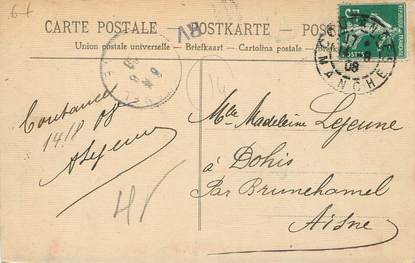 64
CARTE POSTALE
POSTKARTE
Union postale universelle — Briefkaart — Cartolina postale
14
MANCHE
08
Coutances
14/8 08
Mlle Madeleine Lejeune
à Dohis
Par Brunehamel
Aisne